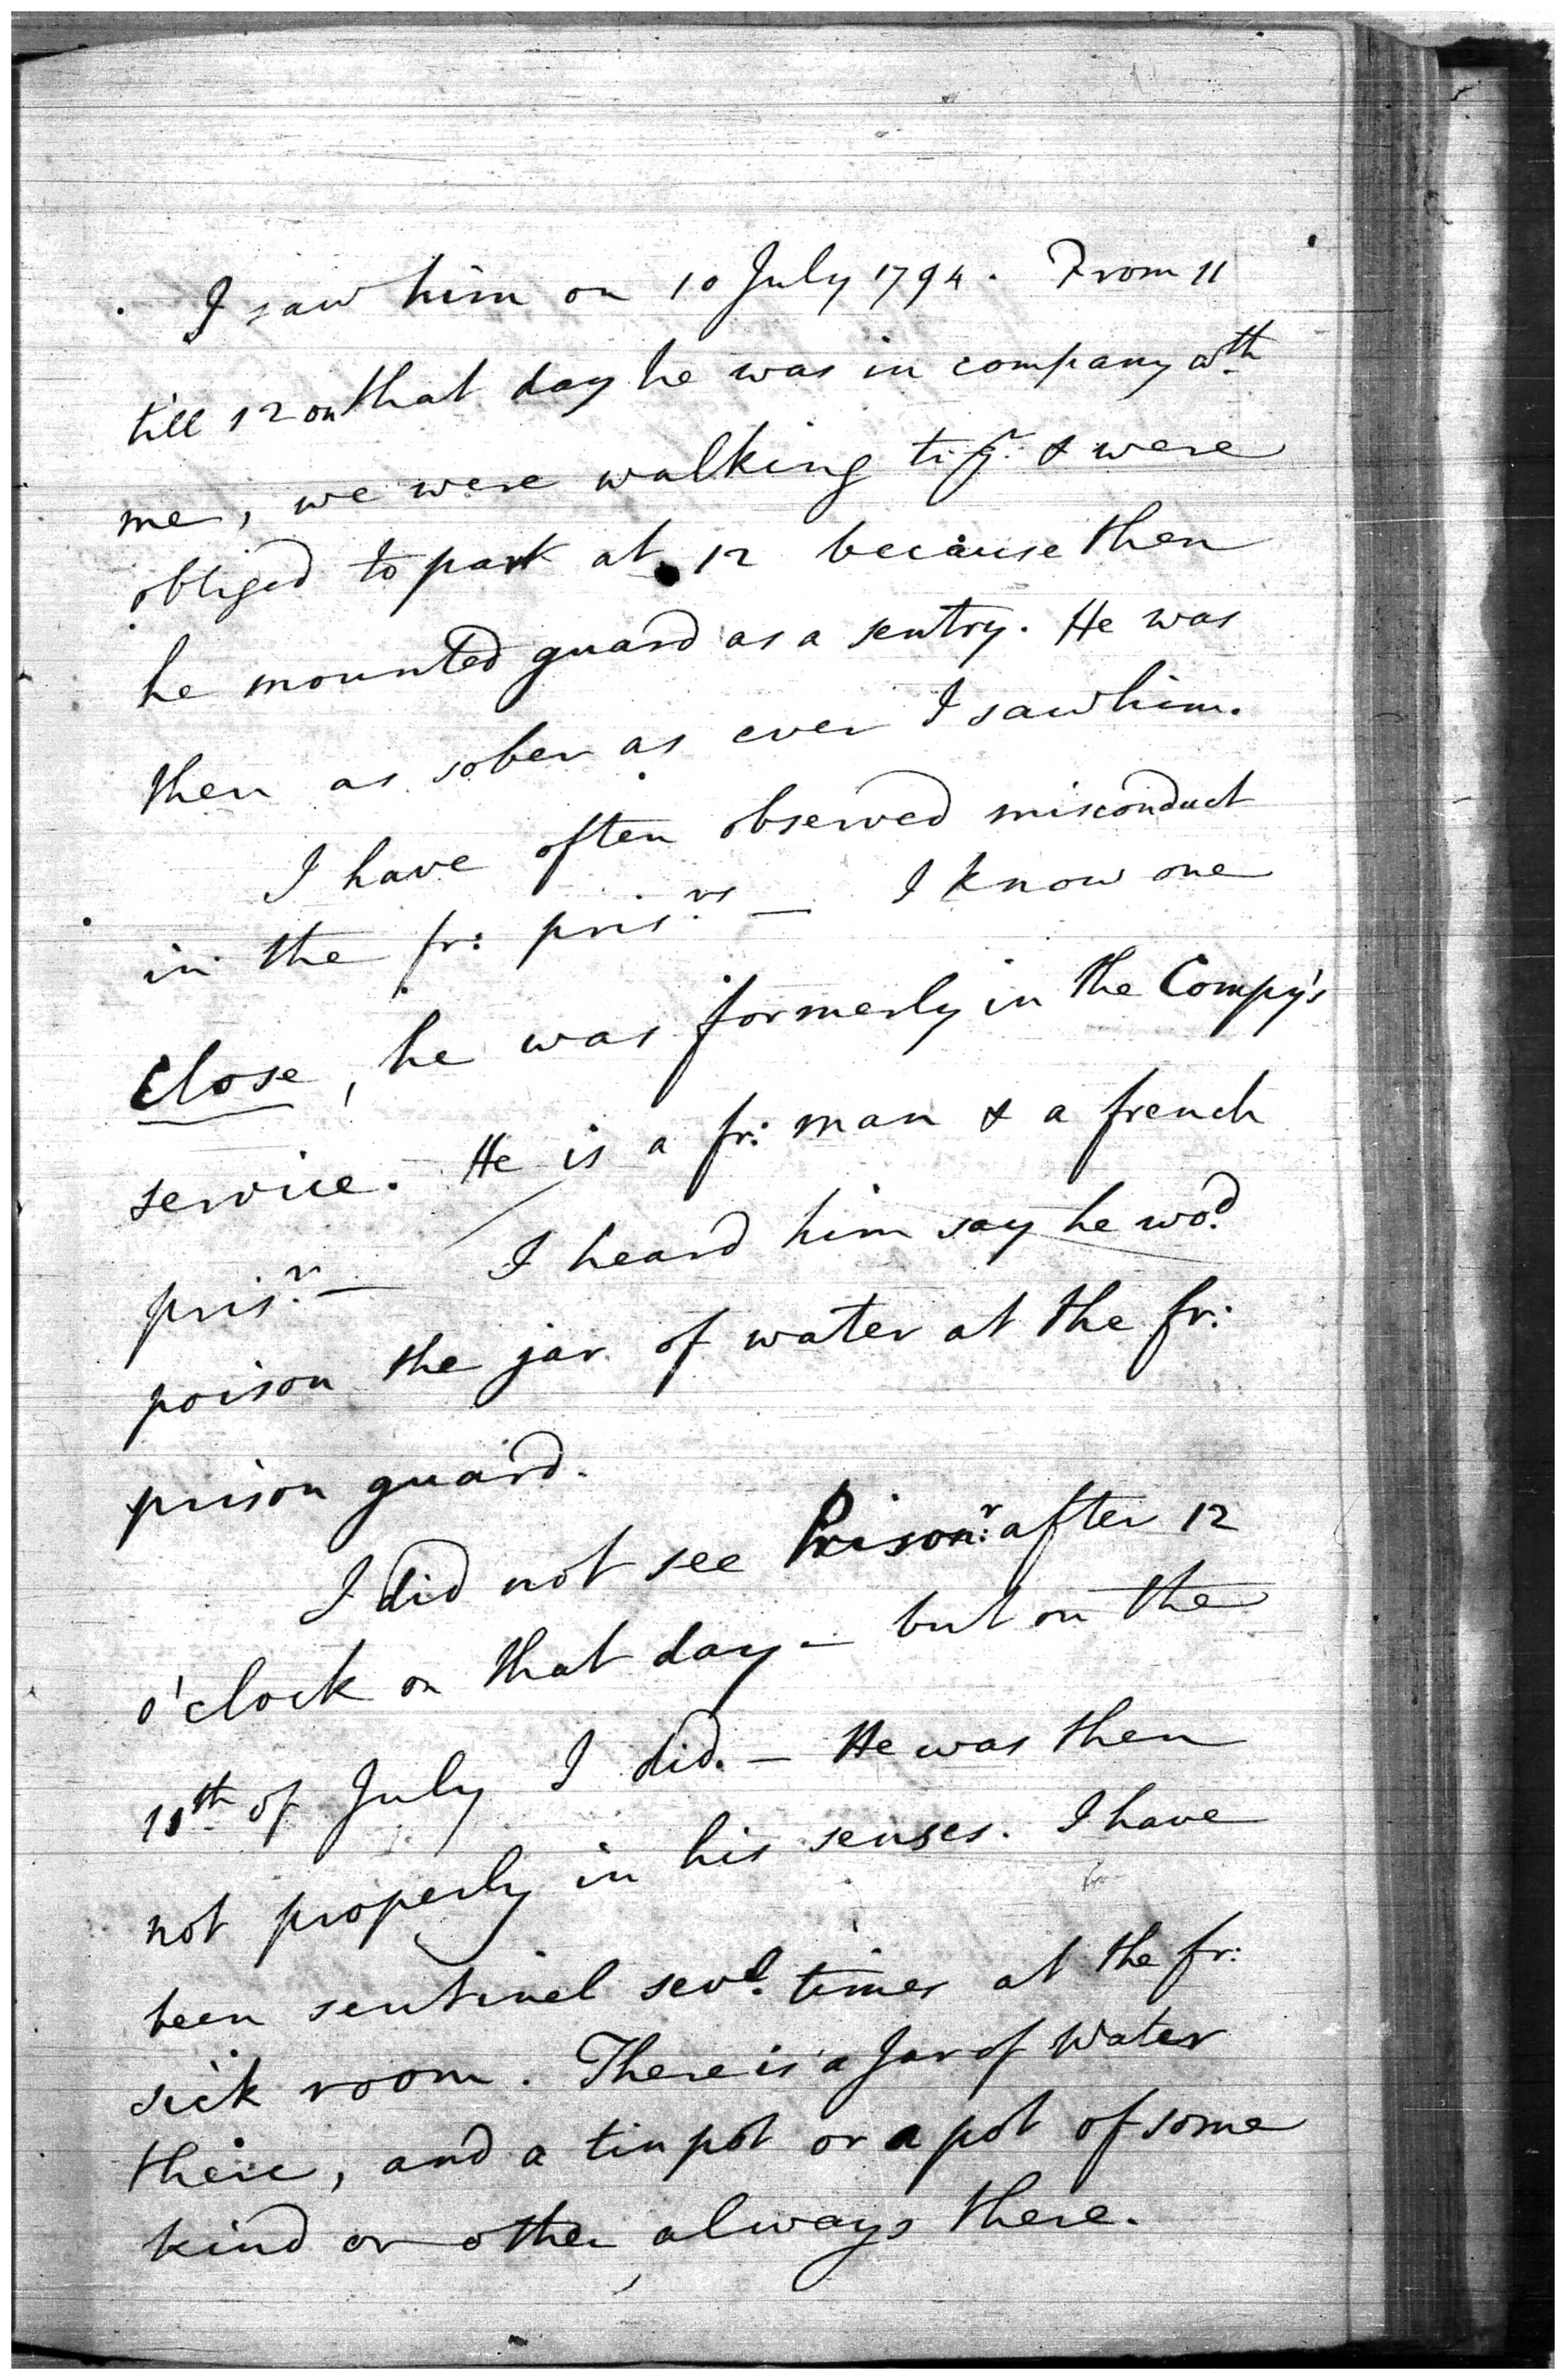 I saw him on 10 July 1794. From 11
till 12 on that day he was in company wth
me, we were walking togr: & were
obliged to part at 12 because then
he mounted guard as a sentry. He was
then as sober as ever I saw him.
I have often observed misconduct
in the fr: prisrs — I know one
Close, he was formerly in the Compy's
service. He is a fr: man & a french
prisr. — I heard him say he wod
poison the jar of water at the fr:
prison guard.
I did not see Prisonr: after 12
o'clock on that day — but on the
of July I did. — He was then
not properly in his senses. I have
been sentinel sevl. times at the fr:
sick room. There is a Jar of Water
there, and a tin pot or a pot of some
kind or other, always there.